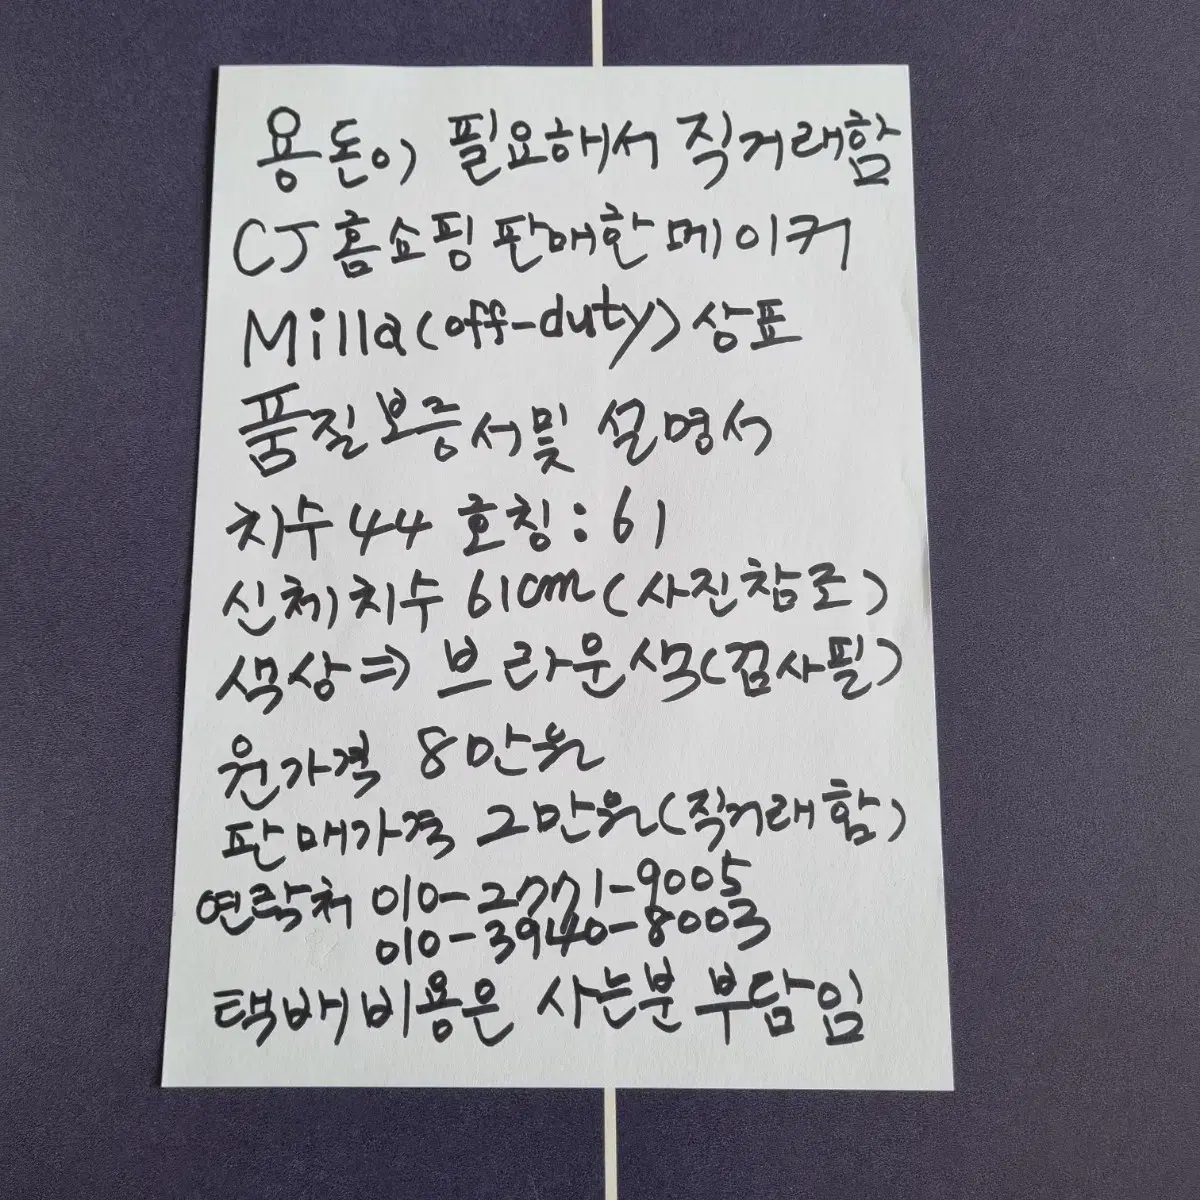 용돈이 필요해서 직거래함
CJ홈쇼핑 판매한 메이커
Milla(off-duty)상표
품질보증서및 설명서
치수44 호칭:61
신체치수 61cm(사진참조)
색상⇒ 브라운색(검사필)
원가격 8만원
판매가격 2만원(직거래함)
연락처 010-2771-9005
010-3940-8003
택배비용은 사는분 부담임